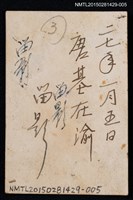 NMTL20150281429-005
③
二七年一月五日
唐基在渝
留影
留影
留影
NMTL20150281429-005